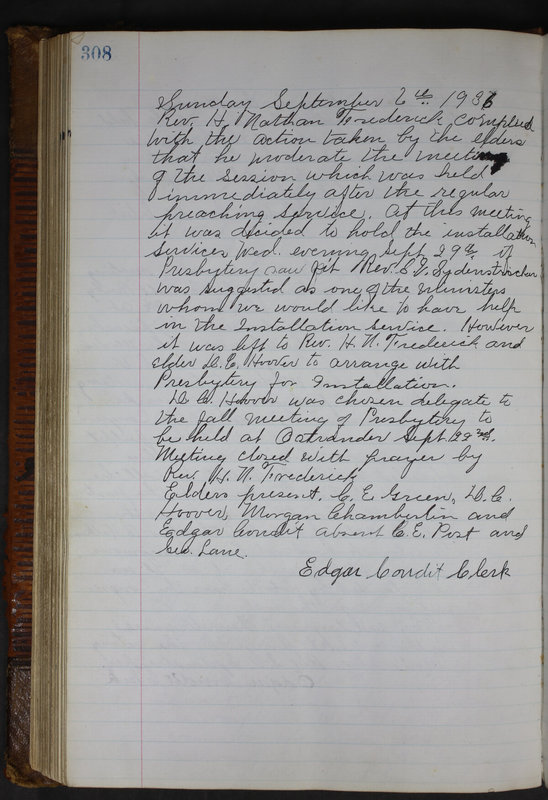 308
Sunday September 6th 1936
Rev. H. Nathan Frederick complied
with the action taken by the elders
that he moderate the meeting
of the session which was held
immediately after the regular
preaching service. At this meeting
it was decided to hold the installation
services Wed. evening Sept 29th if
Presbytery saw fit Rev. S. E. Sydenstricker
was suggested as one of the ministers
whom we would like to have help
in the Installation service. However
it was left to Rev. H. N. Frederick and
elder D. C. Hoover to arrange with
Presbytery for Installation.
D. C. Hoover was chosen delegate to
the fall meeting of Presbytery to
be held at Ostrander Sept 22nd.
Meeting closed with prayer by
Rev. H. N. Frederick
Elders present. C. E. Green, D. C.
Hoover, Morgan Chamberlin and
Edgar Condit absent C. E. Post and
Geo. Lane.
Edgar Condit Clerk